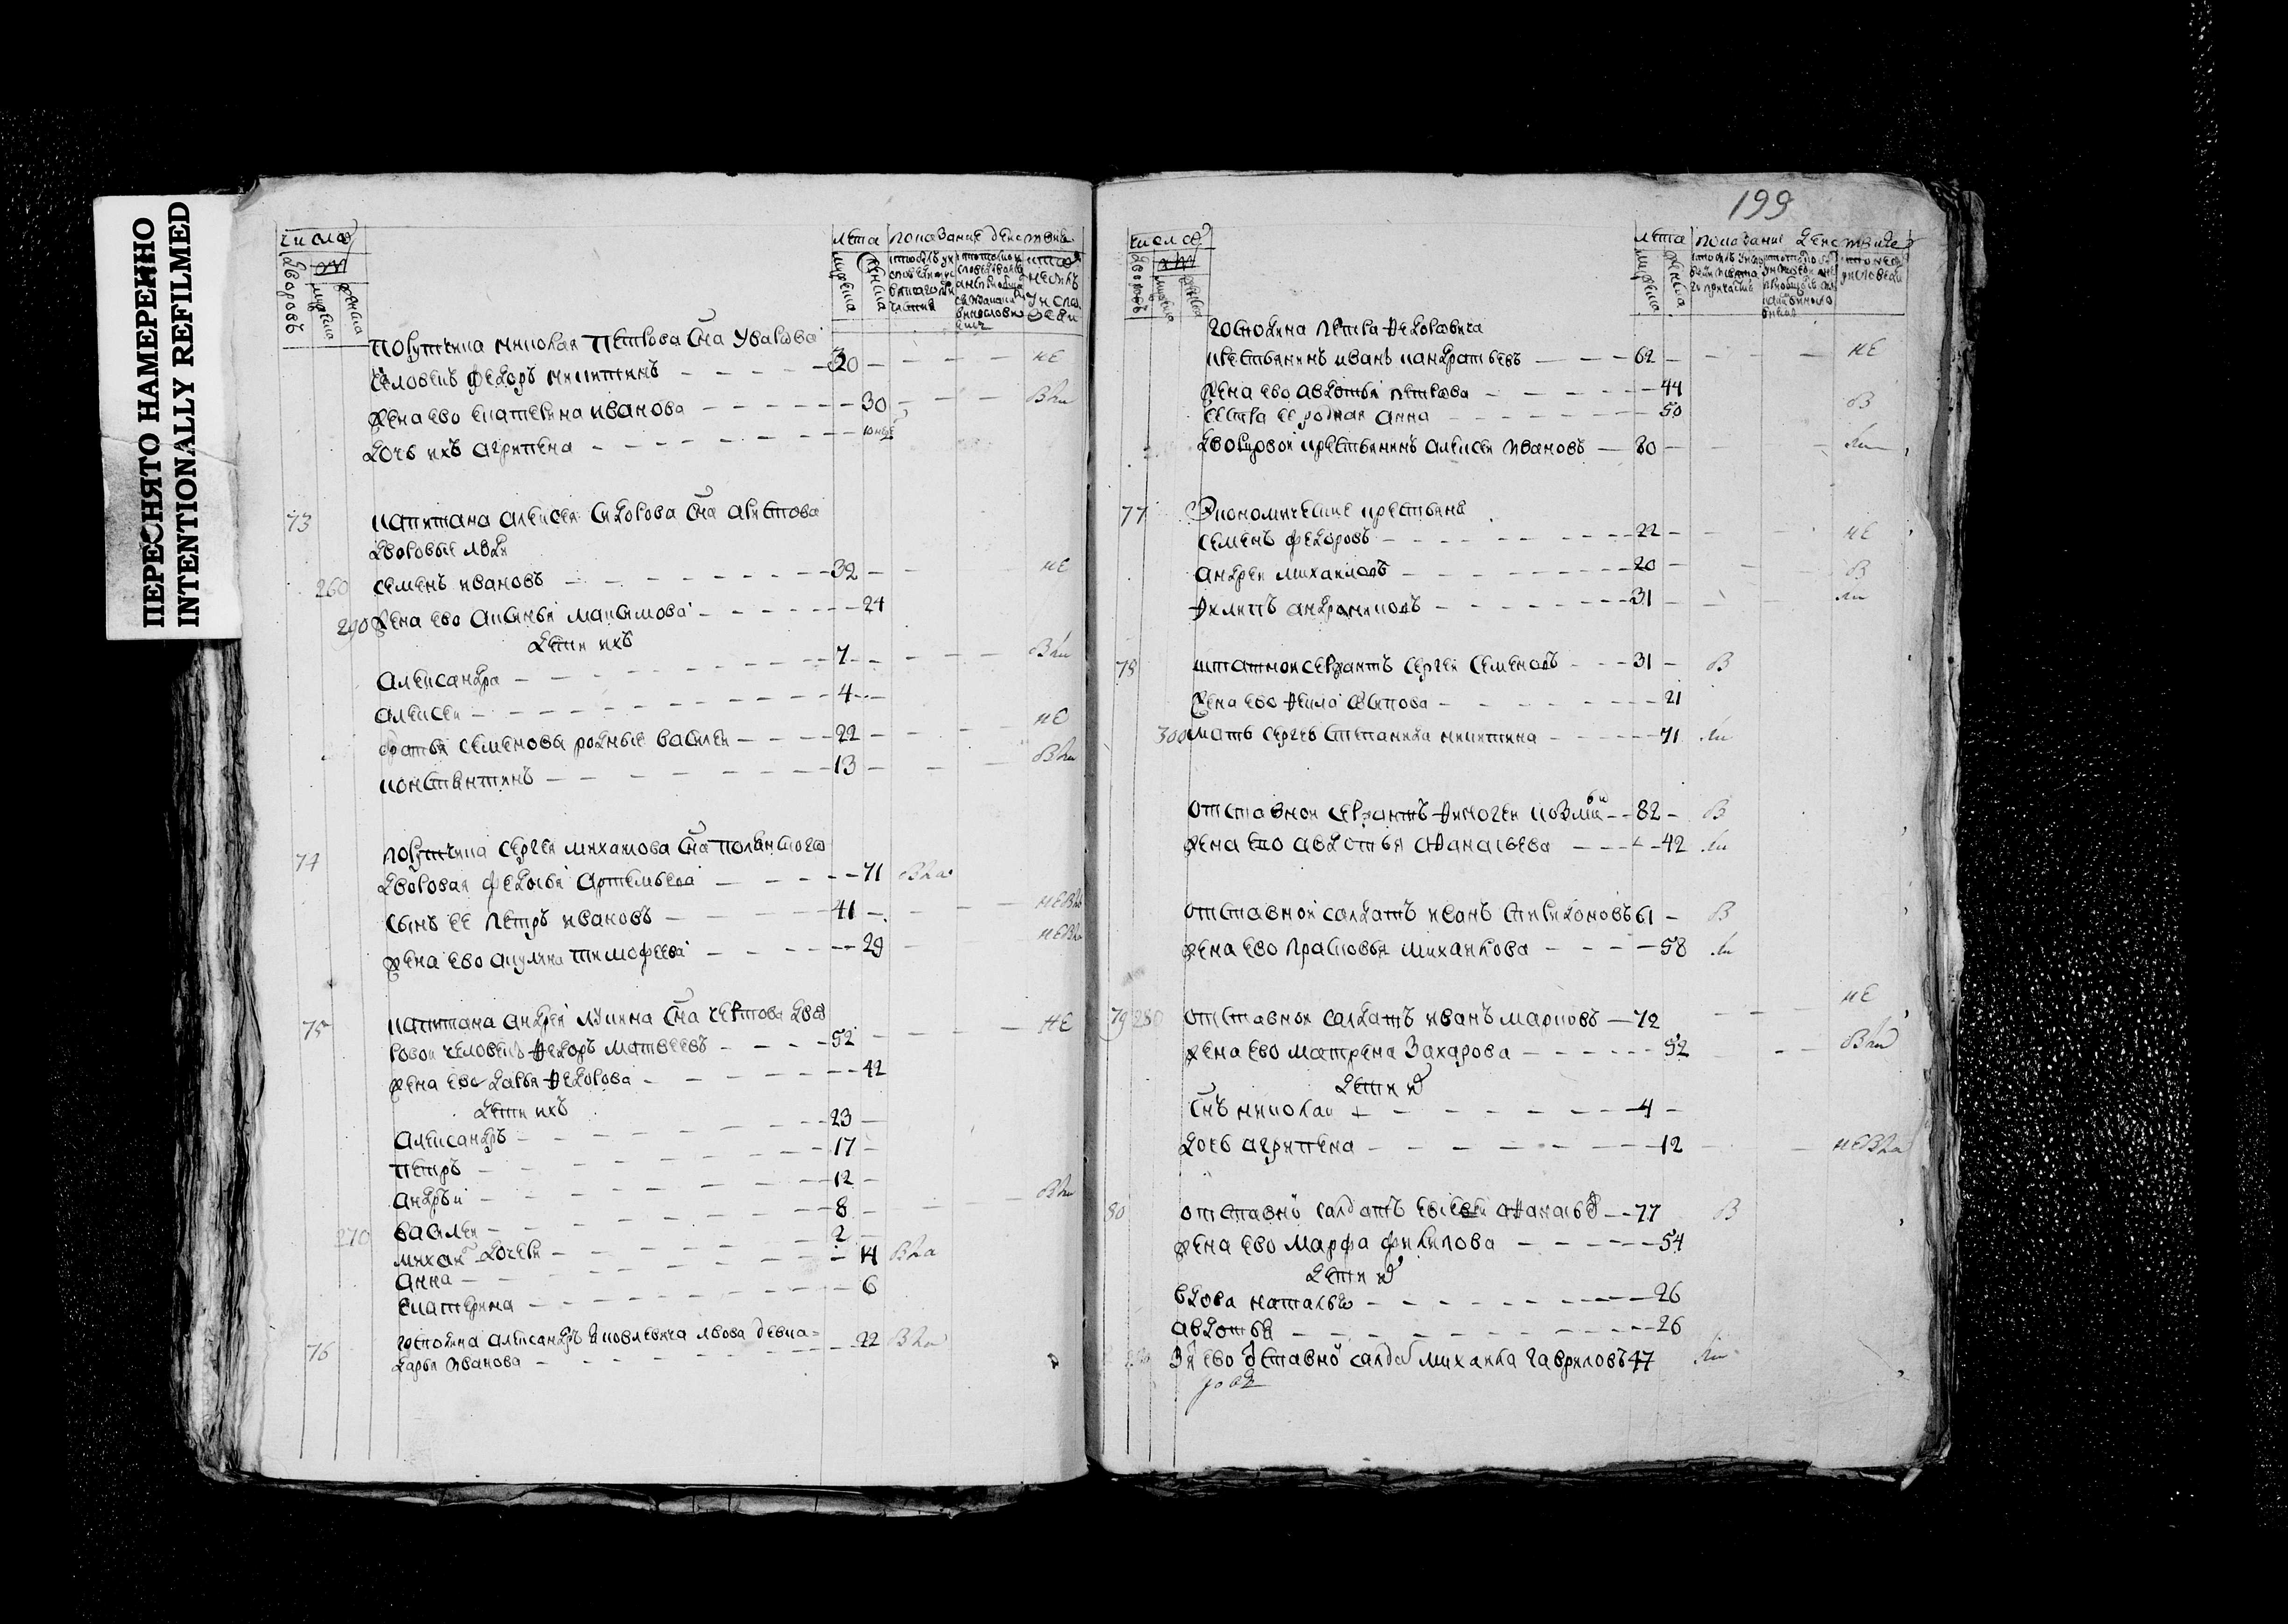 ПЕРЕСНЯТО НАМЕРЕННО
INTENTIONALLY REFILMED
число
дворовъ
мужеска
женска
лета
показание действия
мужеска
женска
порутчика николая петрова сна уварова
человекъ федоръ никитинъ 30 не
жена ево екатерина иванова 30 Вли
дочь ихъ агрипена
73 капитана алексея сидорова сна
дворовые люди
260 семенъ ивановъ 32 не
290 жена ево аксинья максимова 24
дети ихъ
александра 7 Вли
алексеи 4
братья семеновы родные василеи 22 не
константинъ 13 Вли
74 порутчика сергея михаилова сна
дворовая федосья артемьева 71 Вла
сынъ ее петръ ивановъ 41 не Вло
жена ево акулина тимофеева 29 не Вла
75 капитана андрея лукина сна чертова дво
ровои человекъ федоръ матвеевъ 52 не
жена ево дарья федорова 42
дети ихъ
александръ 23
петръ 17
андреи 12
василеи 8 Вли
270 михаи 2
дочери
анна 14 Вла
екатерина 6
76 господина александръ яковлевича львова девка
дарья иванова 22 Вла
199
число
дворовъ
мужеска
женска
лета
показание действие
мужеска
женска
господина петра федоровича
крестьянинъ иванъ кандратьевъ 62 не
жена ево авдотья петрова 44
сестра ее родная анна 50 В
дворовои крестьянинъ алексеи ивановъ 80 ли
77 Экономические крестьяне
семенъ федоровъ 22 не
андреи михаиловъ 20 В
филипъ андрониковъ 31 ли
78 штатнои сержантъ сергеи семеновъ 31 В
жена ево фекла осипова 21
300 мать сергея степанида никитина 71 ли
отставнои сержантъ финогеи козми 82 В
жена ево авдотья афанасьева 42 ли
отставнои салдатъ иванъ спиридоновъ 61 В
жена ево прасковья михаилова 58 ли
79 280 отставнои салдатъ иванъ марковъ 72 не
жена ево матрена захарова 52 Вли
дети их
снъ николаи 4
дочь агрипена 12 не Вла
80 отставнои салдатъ евсевеи афанасьев 77 В
жена ево марфа филипова 54
дети их
вдова наталья 26
авдотья 26
зя ево оставнои салда михаила гавриловъ 47 ли